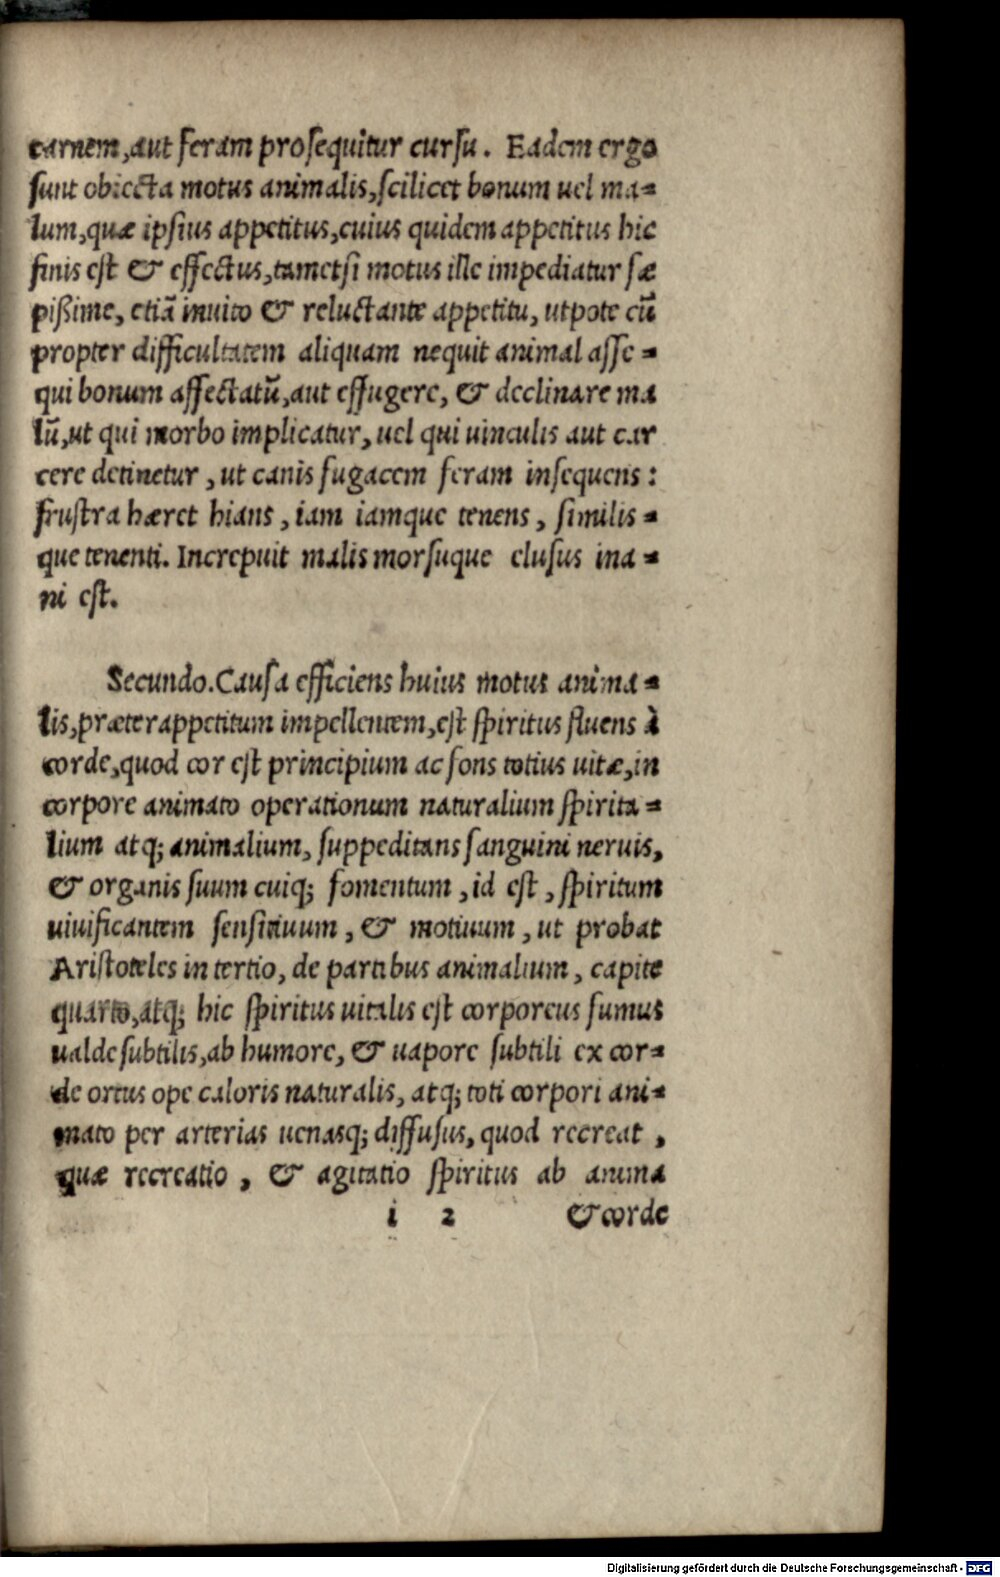 carnem, aut feram prosequitur cursu. Eadem ergo
sunt obiecta motus animalis, scilicet bonum uel ma-
lum, quæ ipsius appetitus, cuius quidem appetitus hic
finis est & effectus, tametsi motus ille impediatur sæ
pißime, etiã inuito & reluctante appetitu, utpote cũ
propter difficultatem aliquam nequit animal asse-
qui bonum affectatũ, aut effugere, & declinare ma
lũ, ut qui morbo implicatur, uel qui uinculis aut car
cere detinetur, ut canis fugacem feram insequens:
frustra hæret hians, iam iamque tenens, similis-
que tenenti. Increpuit malis morsuque elusus ina-
ni est.
Secundo. Causa efficiens huius motus anima-
lis, præter appetitum impellentem, est spiritus fluens à
corde, quod cor est principium ac fons totius uitæ, in
corpore animato operationum naturalium spirita-
lium atq; animalium, suppeditans sanguini neruis,
& organis suum cuiq; fomentum, id est, spiritum
uiuificantem sensitiuum, & motiuum, ut probat
Aristoteles in tertio, de partibus animalium, capite
quarto, atq; hic spiritus uitalis est corporeus fumus
ualde subtilis, ab humore, & uapore subtili ex cor-
de ortus ope caloris naturalis, atq; toti corpori ani-
mato per arterias uenasq; diffusus, quod recreat,
quæ recreatio, & agitatio spiritus ab anima
i 2 & corde
Digitalisierung gefördert durch die Deutsche Forschungsgemeinschaft - DFG